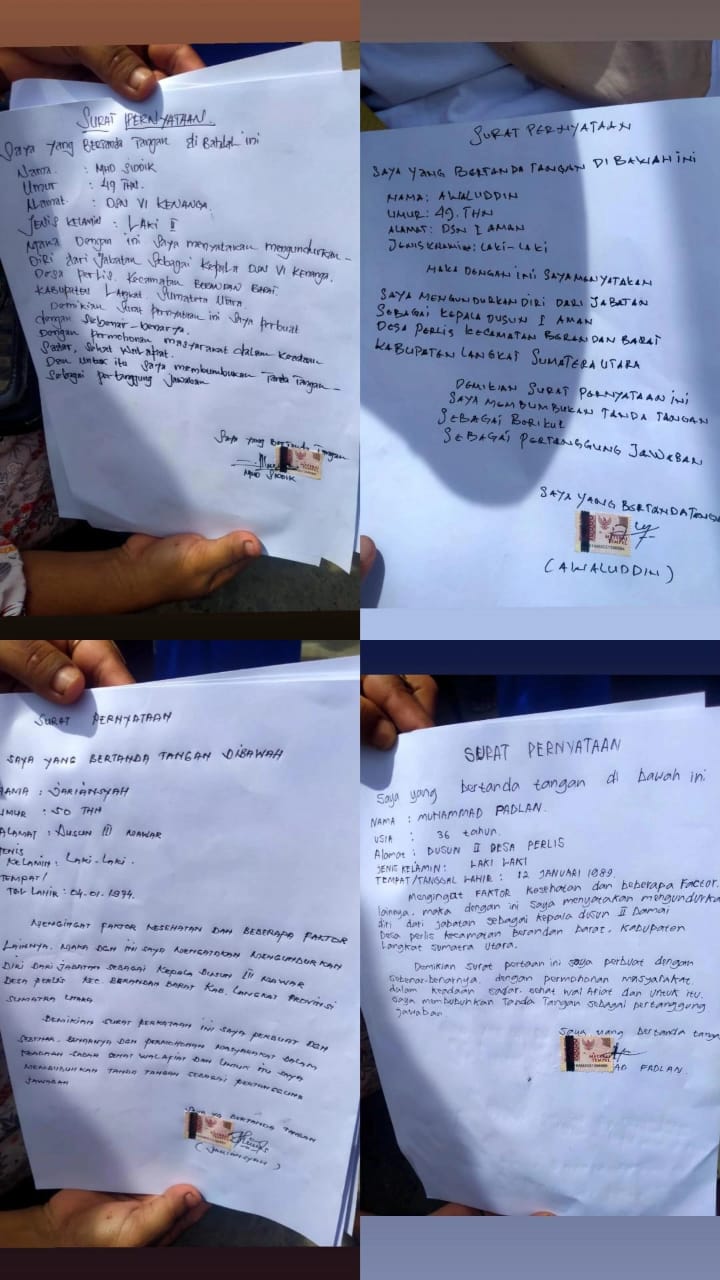 SURAT PERNYATAAN.
Saya yang Bertanda Tangan di Bawah ini
Nama : MHD SIDDIK
Umur : 49 THN.
Alamat : DSN VI KENANGA.
JENIS KELAMIN : LAKI II
Maka Dengan ini Saya menyatakan mengundurkan-
Diri dari Jabatan Sebagai Kepala DSN VI Kenanga.
Desa perlis. Kecamatan BERANDAN BARAT.
KABUPATEN Langkat. Sumatera Utara
Demikian Surat pernyataan ini Saya perbuat
dengan Sebenar-benarya.
Dengan permohonan masyarakat dalam Keadaan
Sadar, Sehat
Dan untuk itu Saya membumbukan Tanda Tangan-
Sebagai pertanggung Jawaban
Saya yang Bertanda Tangan
MHD SIDDIK
SURAT PERNYATAAN
SAYA YANG BERTANDA TANGAN DI BAWAH INI
NAMA : AWALUDDIN
UMUR : 49. THN
ALAMAT : DSN I AMAN
JENIS KRAMIN : LAKI-LAKI
MAKA DENGAN INI SAYA MENYATAKAN
SAYA MENGUNDURKAN DIRI DARI JABATAN
SEBAGAI KEPALA DUSUN I AMAN
DESA PERLIS KECAMATAN BERANDAN BARAT
KABUPATEN LANGKAT SUMATERA UTARA
DEMIKIAN SURAT PERNYATAAN INI
SAYA MEMBUMBUKAN TANDA TANGAN
SEBAGAI BERIKUT
SEBAGAI PERTANGGUNG JAWABAN
SAYA YANG BERTANDATANGAN
(AWALUDDIN)
SURAT PERNYATAAN
SAYA YANG BERTANDA TANGAN DIBAWAH
NAMA : JARIANSYAH
UMUR : 50 THN
ALAMAT : DUSUN III MAWAR
JENIS
KELAMIN : LAKI-LAKI.
TEMPAT/
TGL LAHIR : 04.01.1974.
MENGINGAT FAKTOR KESEHATAN DAN BEBERAPA FAKTOR
LAINNYA. MAKA DGN INI SAYA MENGATAKAN MENGUNDURKAN
DIRI DARI JABATAN SEBAGAI KEPALA DUSUN III MAWAR
DESA PERLIS KEC. BERANDAN BARAT KAB. LANGKAT PROVINSI
SUMATRA UTARA
DEMIKIAN SURAT PERNYATAAN INI SAYA PERBUAT DGN
DGN PERMOHONAN MASYARAKAT DALAM
KEADAAN SADAR SEHAT WALAFIAT DAN UNTUK ITU SAYA
MEMBUBUHKAN TANDA TANGAN SEBAGAI
JAWABAN
SAYA YG BERTANDA TANGAN
(JARIANSYAH)
SURAT PERNYATAAN
Saya yang bertanda tangan di bawah ini
NAMA : MUHAMMAD PADLAN.
USIA : 36 tahun.
Alamat : DUSUN II DESA PERLIS
JENIS KELAMIN : LAKI LAKI
TEMPAT/TANGGAL LAHIR : 12 JANUARI 1989.
Mengingat FAKTOR Kesehatan dan beberapa Factor.
lainnya. maka dengan ini saya menyatakan mengundurka
diri dari jabatan sebagai kepala dusun II Damai
Desa perlis kecamatan berandan barat, Kabupaten
Langkat Sumatra Utara.
Demikian surat pertaan ini saya perbuat dengan
Sebenar-benarnya. dengan permohonan masyarakat.
dalam keadaan sadar, sehat wal Afiat dan untuk itu.
saya membubuhkan Tanda Tangan sebagai pertanggung
jawaban.
Saya yang bertanda tanga
METERAI
TEMPEL
AD PADLAN.